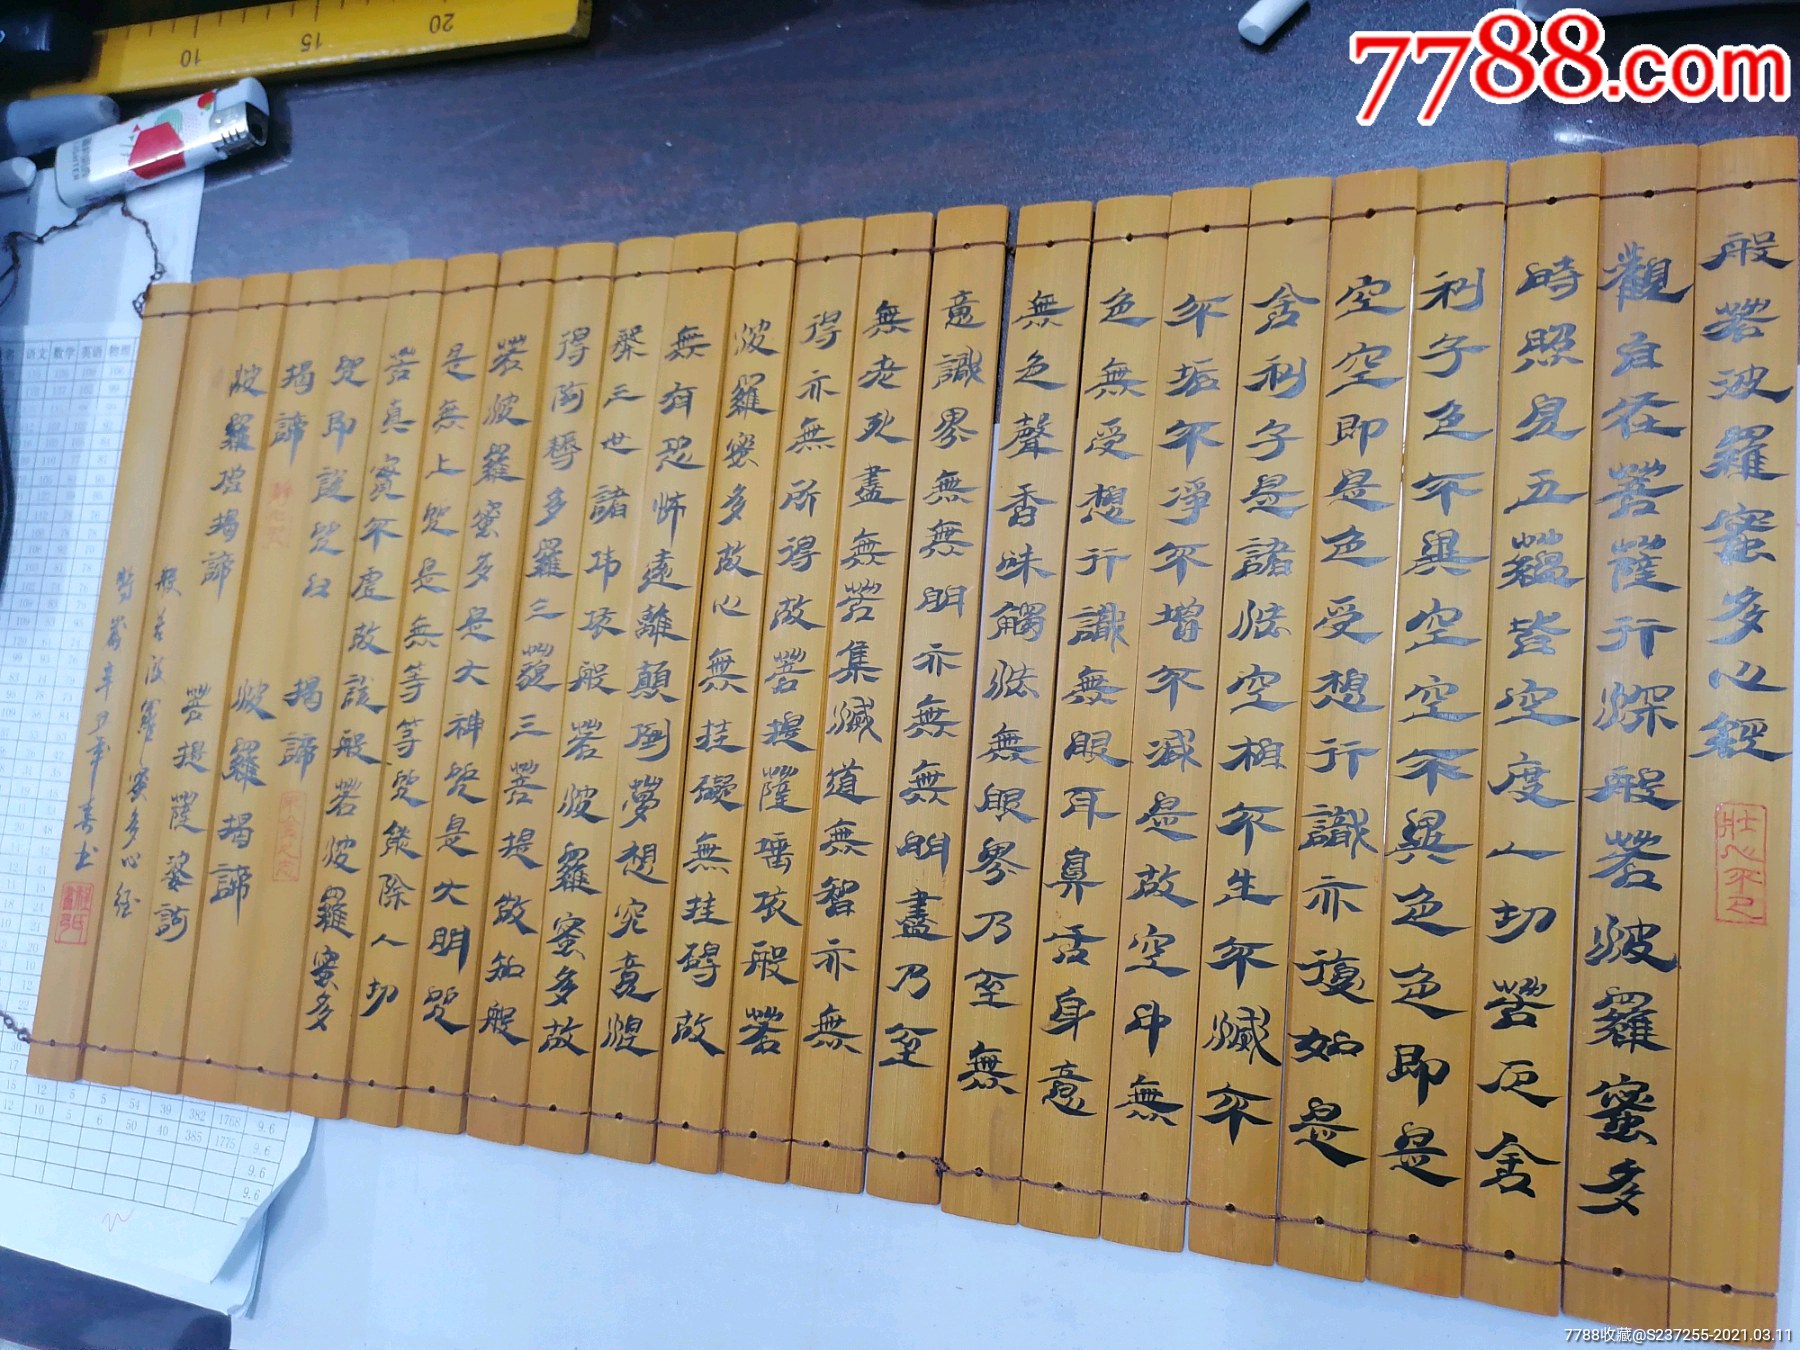 般若波羅蜜多心經
壯心不已
觀自在菩薩行深般若波羅蜜多
時照見五蘊皆空度一切苦厄舍
利子色不異空空不異色色即是
空空即是色受想行識亦復如是
舍利子是諸法空相不生不滅不
不垢不淨不增不減是故空中無
色無受想行識無眼耳鼻舌身意
無色聲香味觸法無眼界乃至無
意識界無無明亦無無明盡乃至
無老死盡無苦集滅道無智亦無
得亦無所得故菩提薩埵依般若
波羅蜜多故心無挂礙無挂碍故
無有恐怖遠離顛倒夢想究竟涅
槃三世諸佛依般若波羅蜜多故
得阿耨多羅三藐三菩提故知般
若波羅蜜多是大神咒是大明咒
是無上咒是無等等咒能除一切
苦真實不虛故說般若波羅蜜多
咒即說咒曰
揭諦 揭諦
波羅揭諦 波羅僧揭諦
菩提薩婆訶
般若波羅蜜多心經
7788.com
7788收藏@S237255-2021.03.11
10 15 20
语文 数学 英语 物理